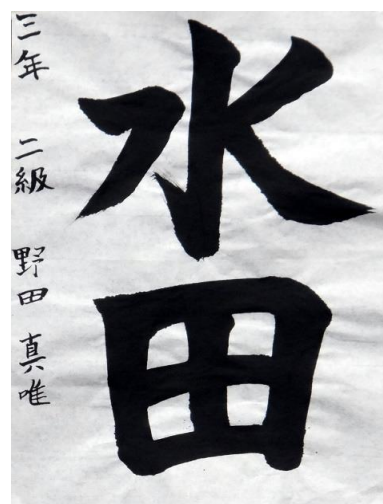 水田
三年 二級 野田 真唯